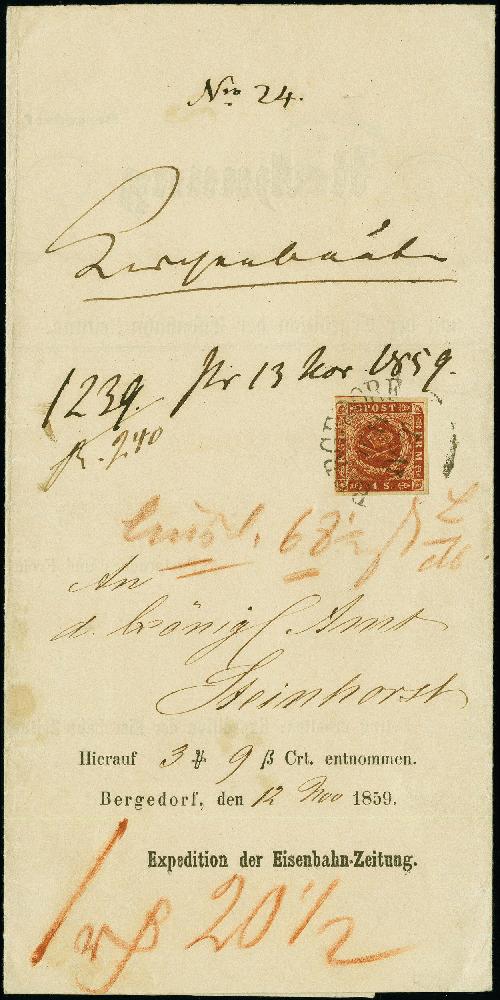 No 24.
1239. Pr 13 Nov 1859.
R. 240
POST
FRM:
KGL
4 S.
68½
An
d. Königl Amt
Steinhorst
Hierauf 3 ₰ 9 β Crt. entnommen.
Bergedorf, den 12 Nov 1859.
Expedition der Eisenbahn-Zeitung.
20 1/2